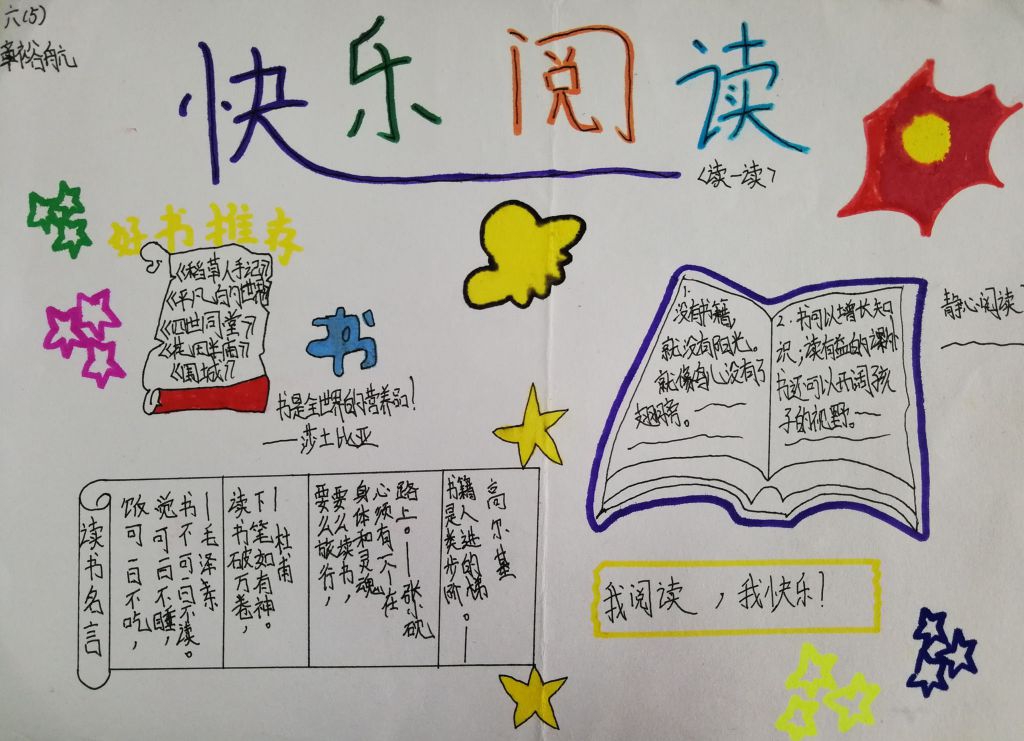 六(5)
裕航
快乐阅读
〈读一读〉
好书推荐
《稻草人手记》
《平凡的世界》
《四世同堂》
《围城》
书
书是全世界的营养品!
——莎士比亚
读书名言
饭可一日不吃,
觉可一日不睡,
书不可一日不读。
—毛泽东
读书破万卷,
下笔如有神。
—杜甫
要么旅行,
要么读书,
身体和灵魂
心须有一个在
路上。——张小砚
书籍是人类进步的阶梯。——
高尔基
1.
没有书籍,
就没有阳光。
就像鸟儿没有了
翅膀。
2.书可以增长知
识;读有益的课外
书还可以开阔孩
子的视野。
静心阅读
我阅读,我快乐!